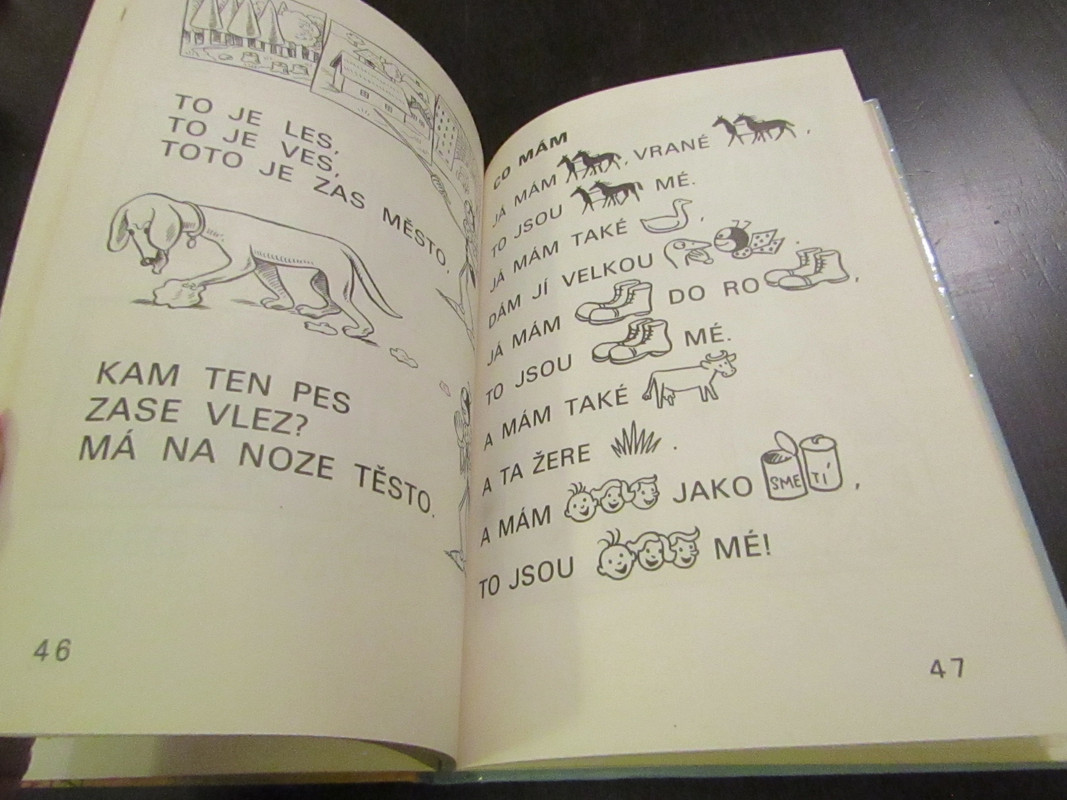 TO JE LES,
TO JE VES,
TOTO JE ZAS MĚSTO,
KAM TEN PES
ZASE VLEZ?
MÁ NA NOZE TĚSTO.
46
CO MÁM
JÁ MÁM , VRANÉ ,
TO JSOU MÉ.
JÁ MÁM TAKÉ ,
DÁM JÍ VELKOU .
JÁ MÁM DO RO ,
TO JSOU MÉ.
A MÁM TAKÉ
A TA ŽERE .
A MÁM JAKO SMETÍ ,
TO JSOU MÉ!
47